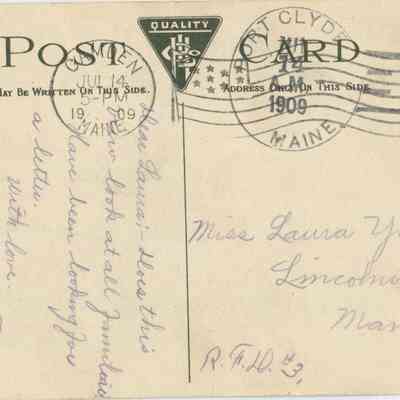 POST CARD
QUALITY
MAY BE WRITTEN ON THIS SIDE.
ADDRESS ONLY ON THIS SIDE.
CAMDEN
JUL 14
5-PM
1909
MAINE
PORT CLYDE
14
A.M.
1909
MAINE
Dear Laura; Does this
view look at all familiar
have been looking for
a letter.
With love.
Miss Laura
Lincoln
R.F.D. #3,